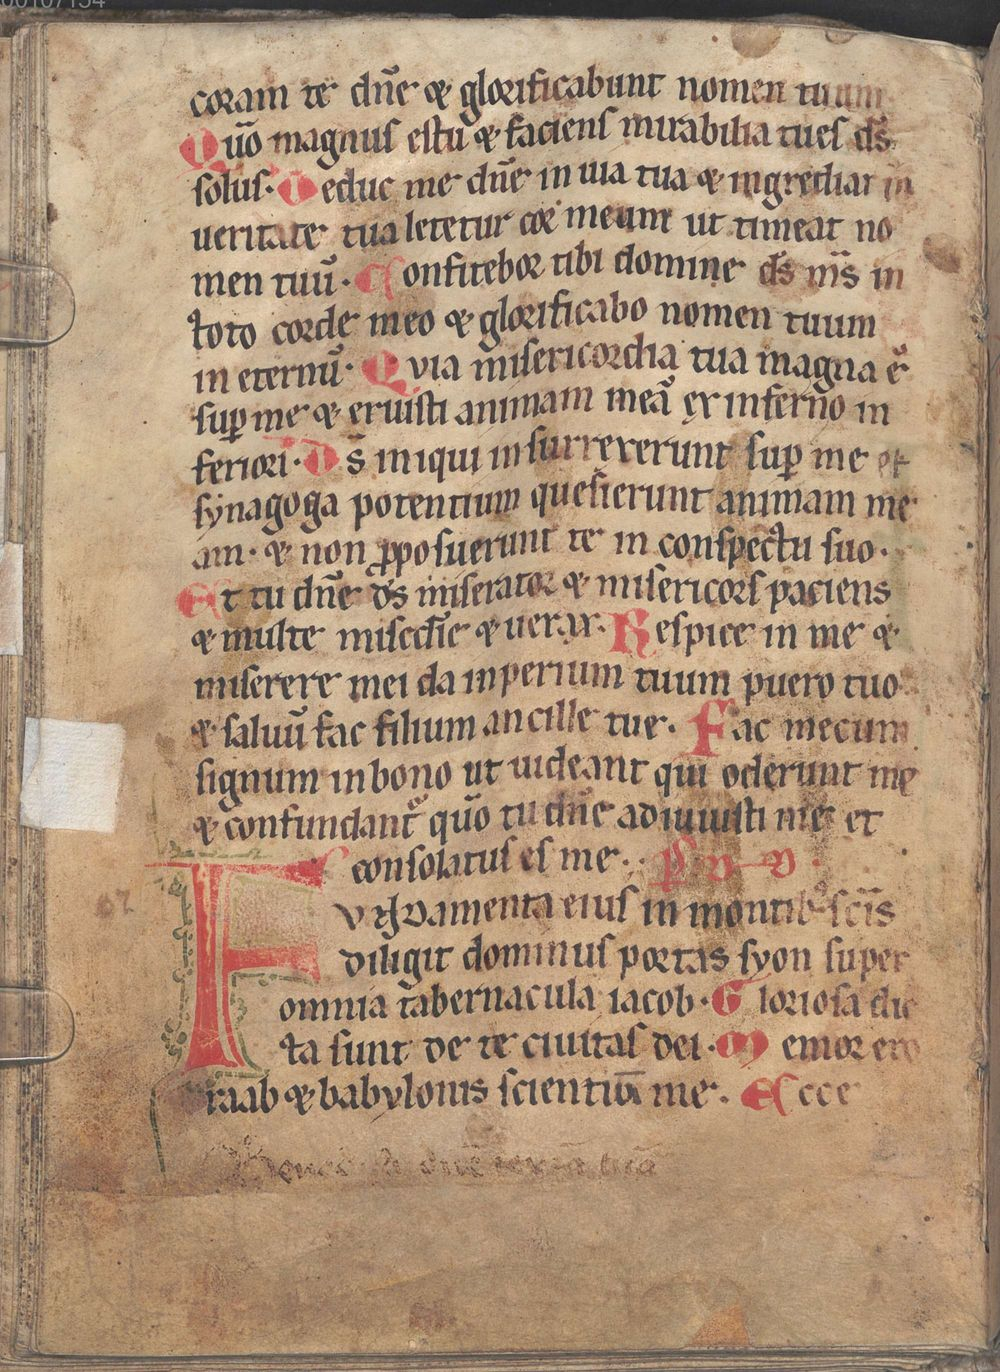 coram te dn̄e ⁊ glorificabunt nomen tuum
Quō magnus es tu ⁊ faciens mirabilia tu es ds̄
solus· Deduc me dn̄e in uia tua ⁊ ingrediar in
ueritate tua letetur cor meum ut timeat no
men tuū· Confitebor tibi domine ds̄ ms̄ in
toto corde meo ⁊ glorificabo nomen tuum
in eternū· Quia misericordia tua magna ē
suꝑ me ⁊ eruisti animam meā ex inferno in
feriori· Ds̄ iniqui insurrexerunt suꝑ me et
synagoga potentium quesierunt animam me
am· ⁊ non ꝓposuerunt te in conspectu suo·
Et tu dn̄e ds̄ miserator ⁊ misericors paciens
⁊ multe miscd̄ie ⁊ uerax· Respice in me ⁊
miserere mei da inperium tuum puero tuo
⁊ saluū fac filium ancille tue· Fac mecum
signum in bono ut uideant qui oderunt me
⁊ confundant᷑ quō tu dn̄e adiuuisti me et
consolatus es me·
Fundamenta eius in montibꝰ scīs
diligit dominus portas syon super
omnia tabernacula iacob· Gloriosa dic
ta sunt de te ciuitas dei· Memor ero
raab ⁊ babylonis scientiū me· Ecce